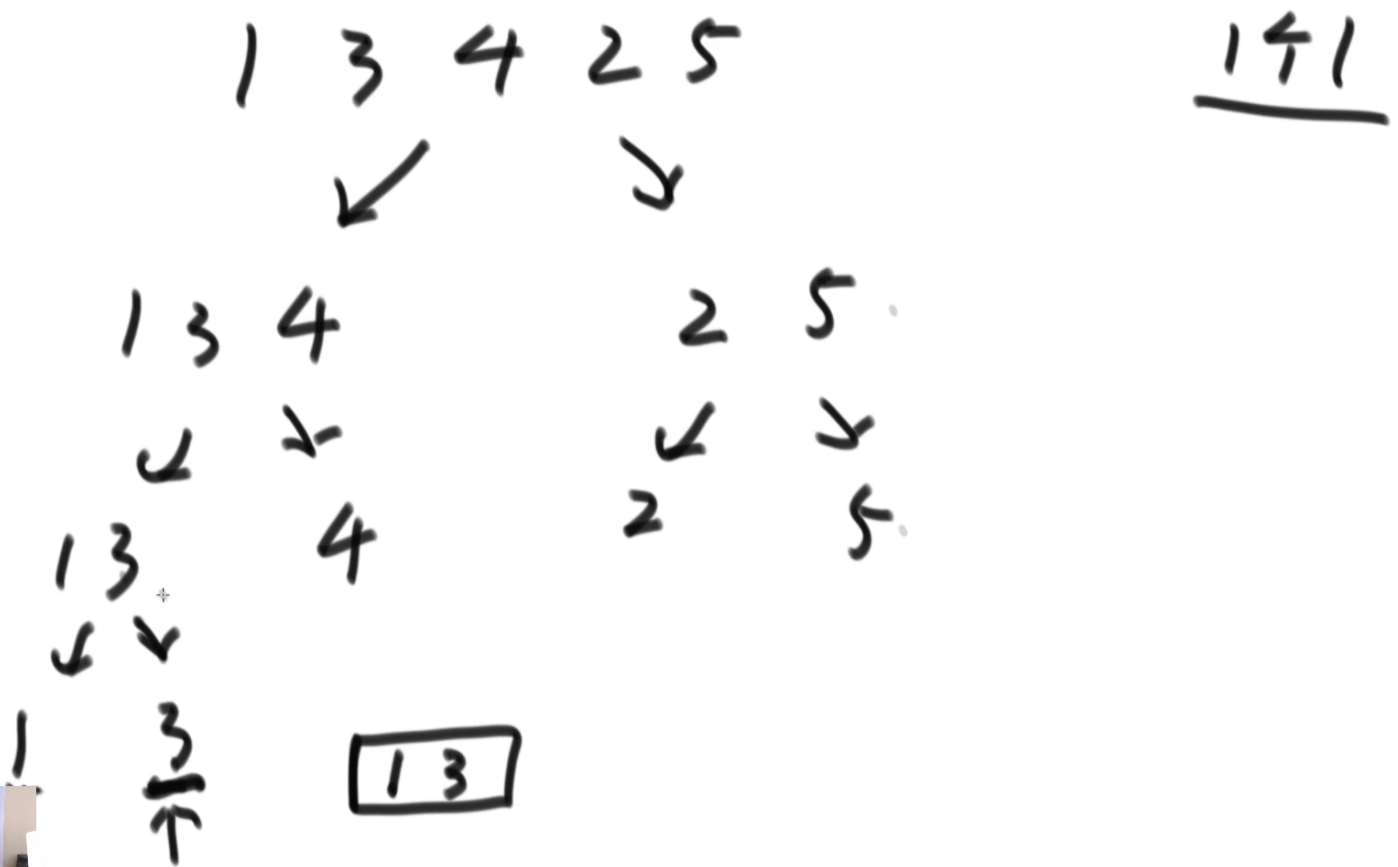 1 3 4 2 5
141
1 3 4
2 5
1 3
4
2
5
1
3
1 3